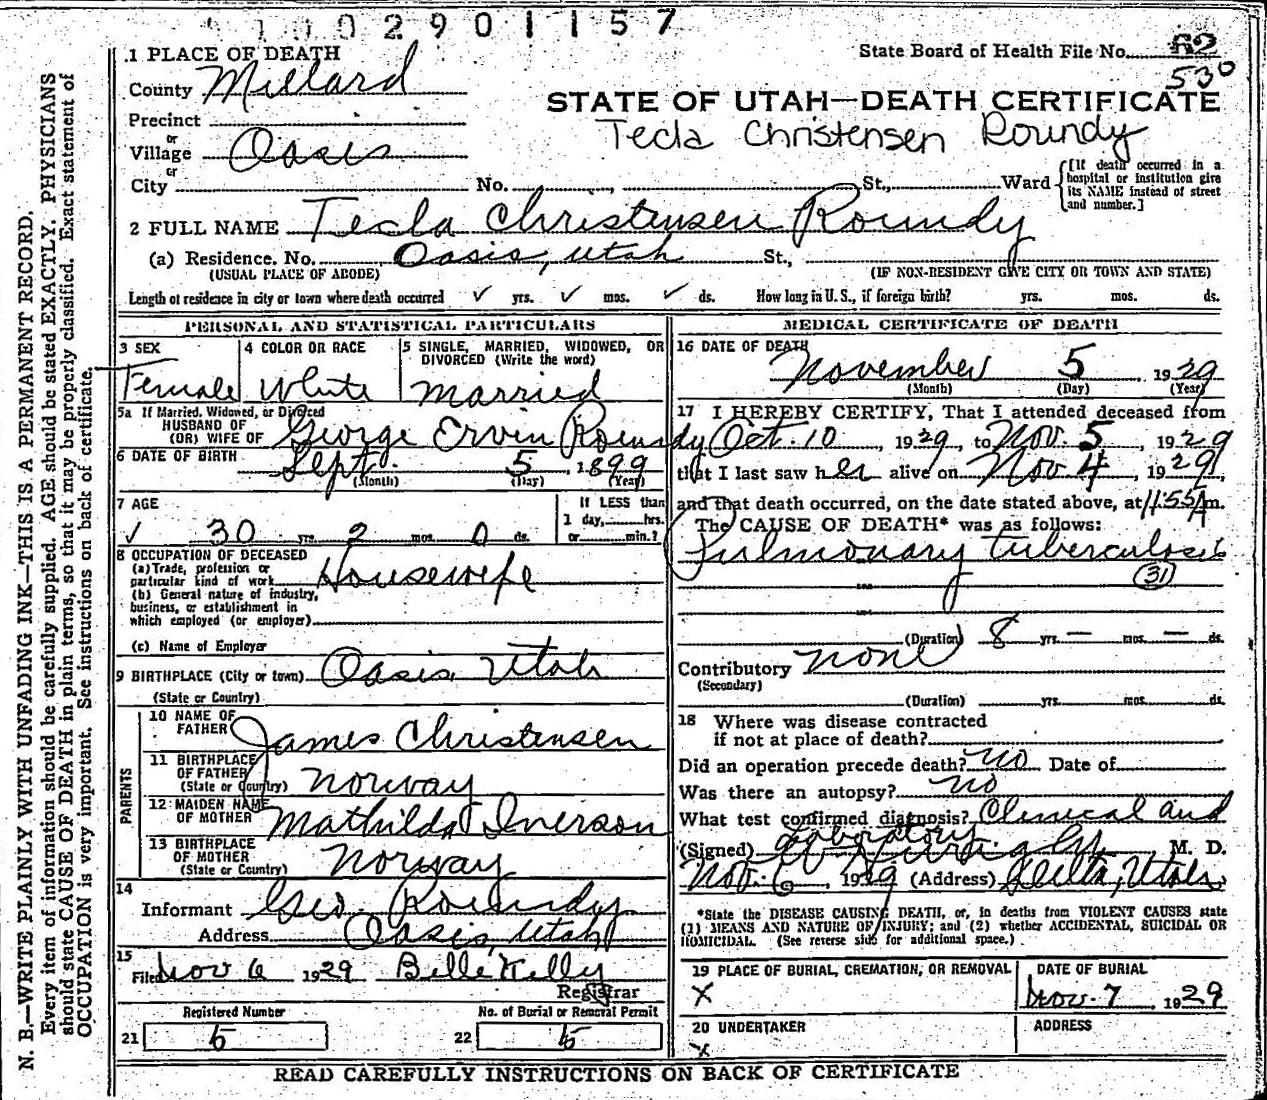 1002901157
1 PLACE OF DEATH
State Board of Health File No. 82
530
County Millard
STATE OF UTAH—DEATH CERTIFICATE
Precinct
Tecla Christensen Roundy
or
Village Oasis
or
City No. St., Ward
[If death occurred in a hospital or institution give its NAME instead of street and number.]
2 FULL NAME Tecla Christensen Roundy
(a) Residence. No. Oasis, Utah St.,
(USUAL PLACE OF ABODE) (IF NON-RESIDENT GIVE CITY OR TOWN AND STATE)
Length of residence in city or town where death occurred ✓ yrs. ✓ mos. ✓ ds. How long in U. S., if foreign birth? yrs. mos. ds.
PERSONAL AND STATISTICAL PARTICULARS
3 SEX
Female
4 COLOR OR RACE
White
5 SINGLE, MARRIED, WIDOWED, OR
DIVORCED (Write the word)
Married
5a If Married, Widowed, or Divorced
HUSBAND OF
(OR) WIFE OF George Ervin Roundy
6 DATE OF BIRTH Sept. 5, 1899
(Month) (Day) (Year)
7 AGE
If LESS than
1 day, hrs.
or min.?
✓ 30 yrs. 2 mos. 0 ds.
8 OCCUPATION OF DECEASED
(a) Trade, profession or
particular kind of work Housewife
(b) General nature of industry,
business, or establishment in
which employed (or employer)
(c) Name of Employer
9 BIRTHPLACE (City or town) Oasis, Utah
(State or Country)
PARENTS
10 NAME OF
FATHER James Christensen
11 BIRTHPLACE
OF FATHER
(State or Country) Norway
12 MAIDEN NAME
OF MOTHER Mathilda Iverson
13 BIRTHPLACE
OF MOTHER
(State or Country) Norway
14
Informant Geo. Roundy
Address Oasis, Utah
15
Filed Nov 6 1929 Belle Kelly
Registrar
Registered Number
21 5
No. of Burial or Removal Permit
22 5
MEDICAL CERTIFICATE OF DEATH
16 DATE OF DEATH
November 5, 1929
(Month) (Day) (Year)
17 I HEREBY CERTIFY, That I attended deceased from
Oct. 10 1929, to Nov. 5, 1929
that I last saw her alive on Nov 4, 1929,
and that death occurred, on the date stated above, at 11:55 A m.
The CAUSE OF DEATH* was as follows:
Pulmonary tuberculosis
31
(Duration) 8 yrs. — mos. — ds.
Contributory none
(Secondary)
(Duration) yrs. mos. ds.
18 Where was disease contracted
if not at place of death?
Did an operation precede death? no Date of
Was there an autopsy? no
What test confirmed diagnosis? Clinical and
Laboratory
(Signed) M. D.
Nov. 6, 1929 (Address) Delta, Utah
*State the DISEASE CAUSING DEATH, or, in deaths from VIOLENT CAUSES state
(1) MEANS AND NATURE OF INJURY; and (2) whether ACCIDENTAL, SUICIDAL OR
HOMICIDAL. (See reverse side for additional space.)
19 PLACE OF BURIAL, CREMATION, OR REMOVAL
X
DATE OF BURIAL
Nov. 7, 1929
20 UNDERTAKER
X
ADDRESS
READ CAREFULLY INSTRUCTIONS ON BACK OF CERTIFICATE
N. B.—WRITE PLAINLY WITH UNFADING INK—THIS IS A PERMANENT RECORD.
Every item of information should be carefully supplied. AGE should be stated EXACTLY. PHYSICIANS
should state CAUSE OF DEATH in plain terms, so that it may be properly classified. Exact statement of
OCCUPATION is very important. See instructions on back of certificate.